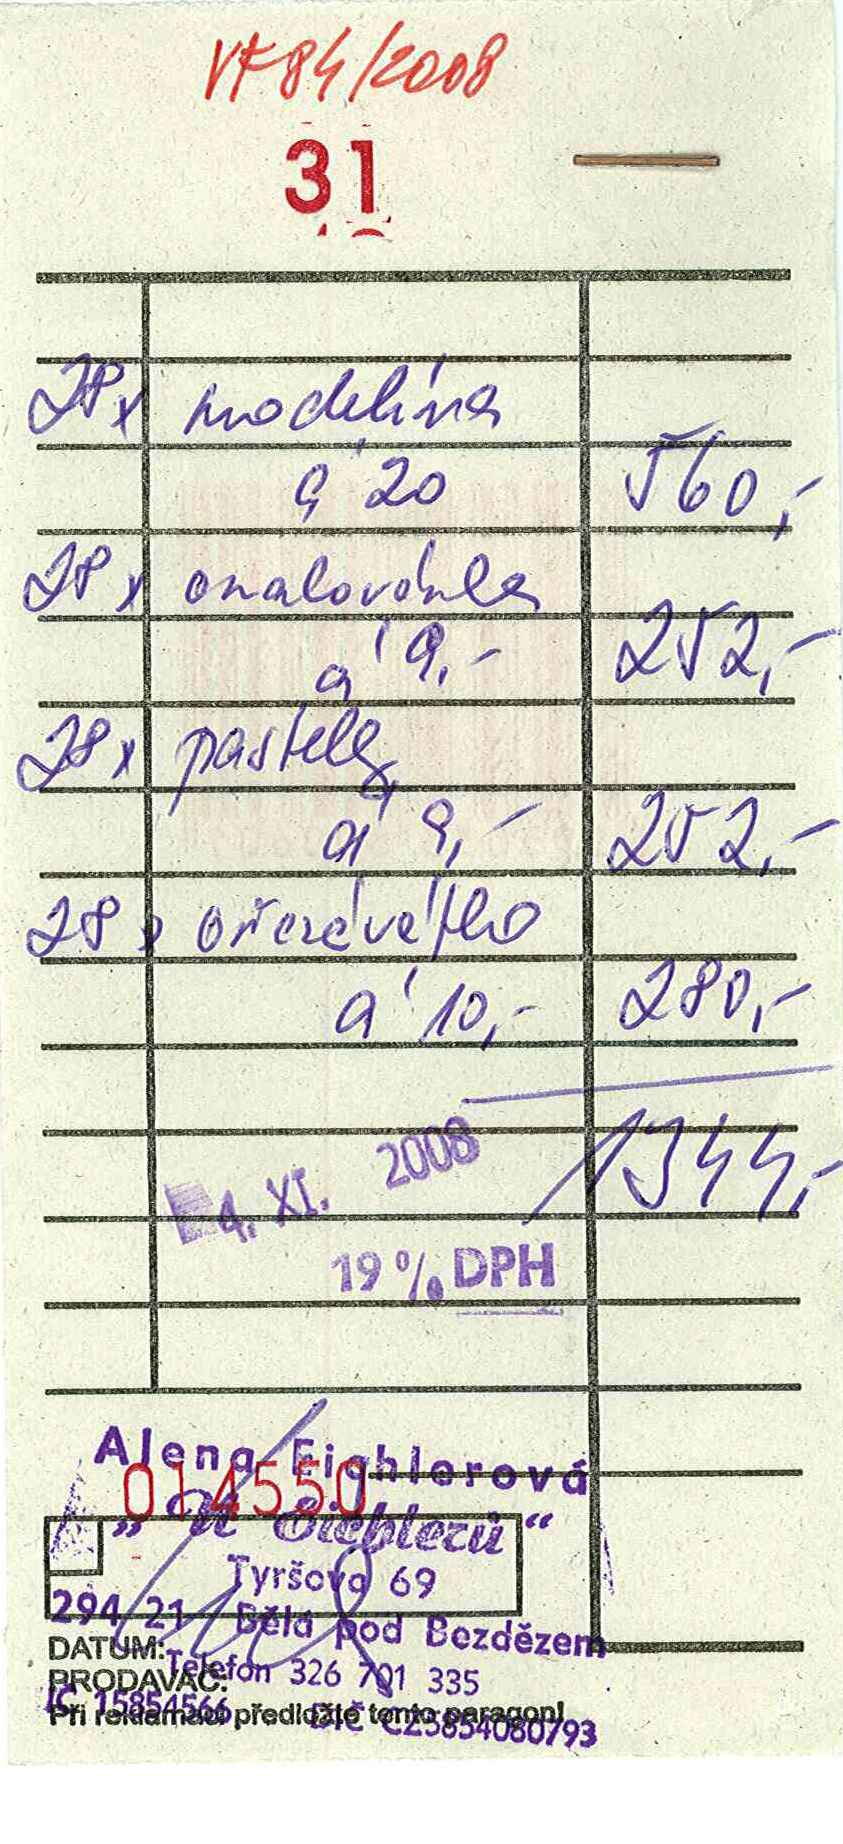 VF84/2008
31
28x modelína
á 20 560,-
28x omalovánka
á 9,- 252,-
28x pastely
á 9,- 252,-
28x ořezávátko
á 10,- 280,-
1344,-
4. XI. 2008
19% DPH
Alena Eichlerová
014550
„U Eichlerů“
Tyršova 69
294 21 Bělá pod Bezdězem
DATUM:
Telefon 326 701 335
PRODAVAČ:
IČ 15854566 DIČ CZ5854080793
Při reklamaci předložte tento paragon!